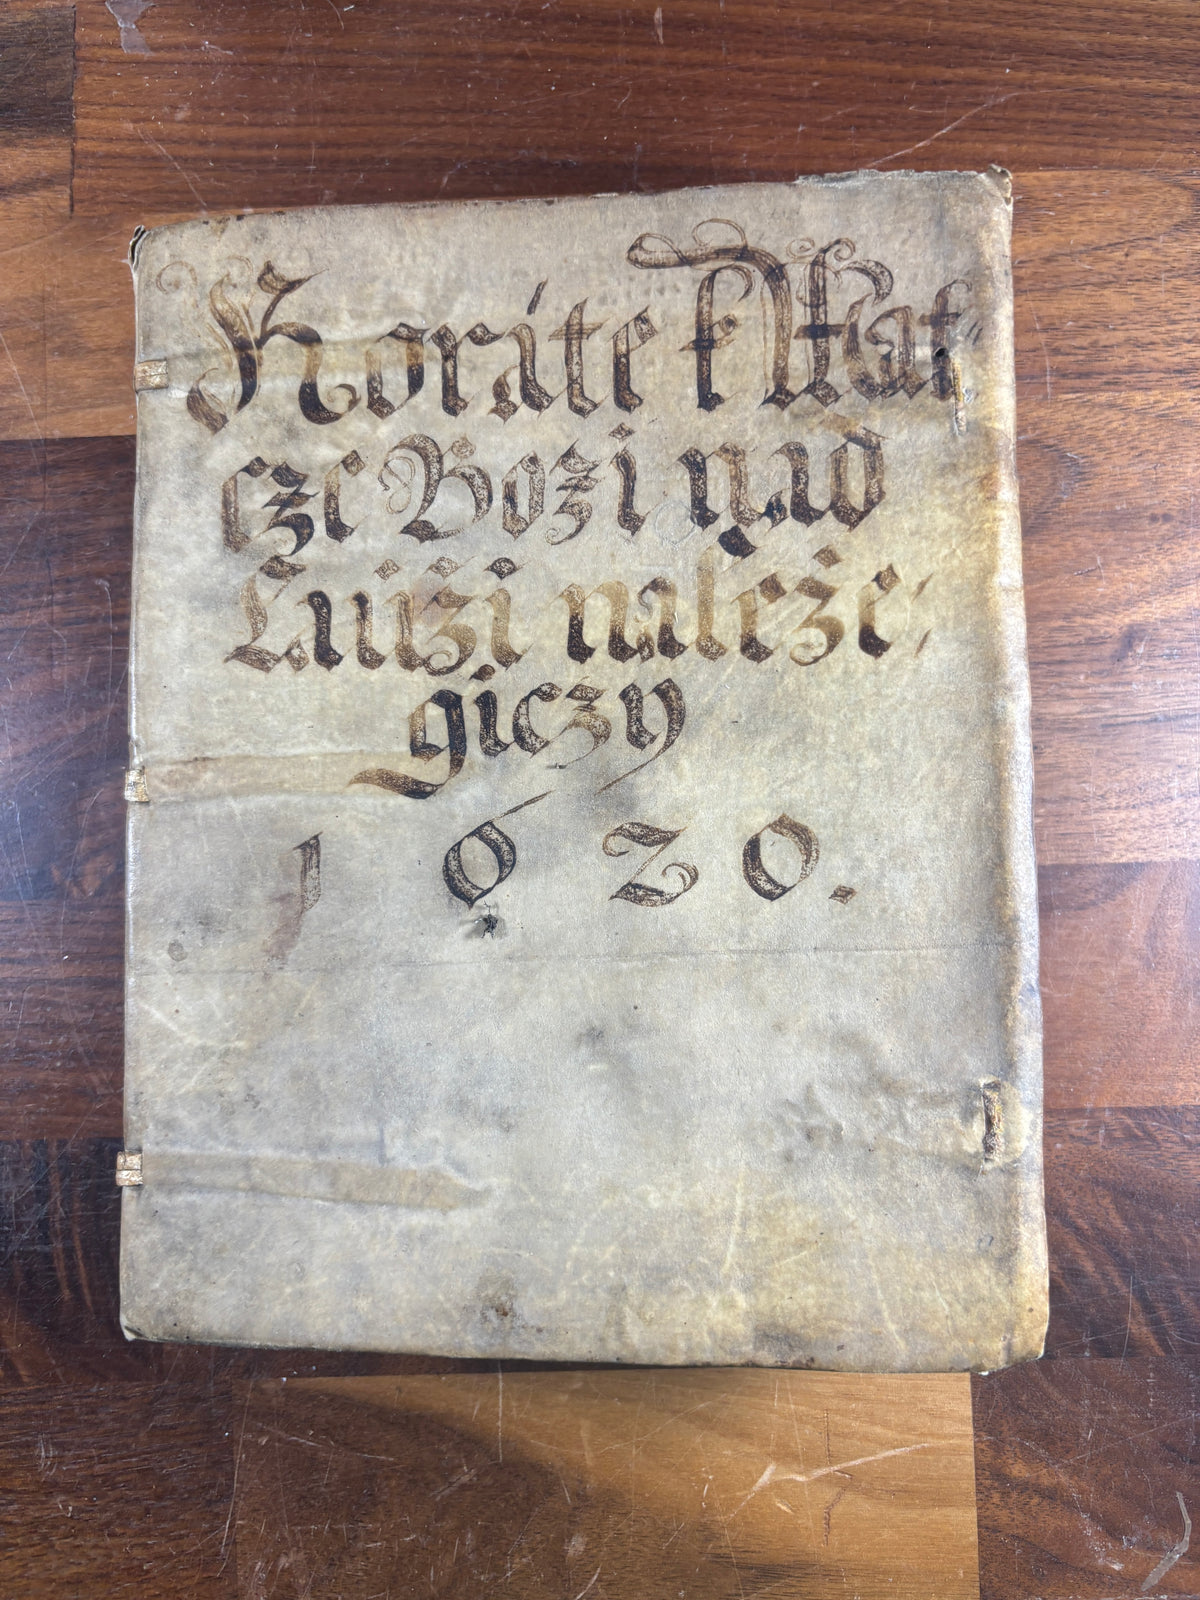 Roráte k Mat„
cze Bozi nad
Luiži naleže„
giczy
1620.